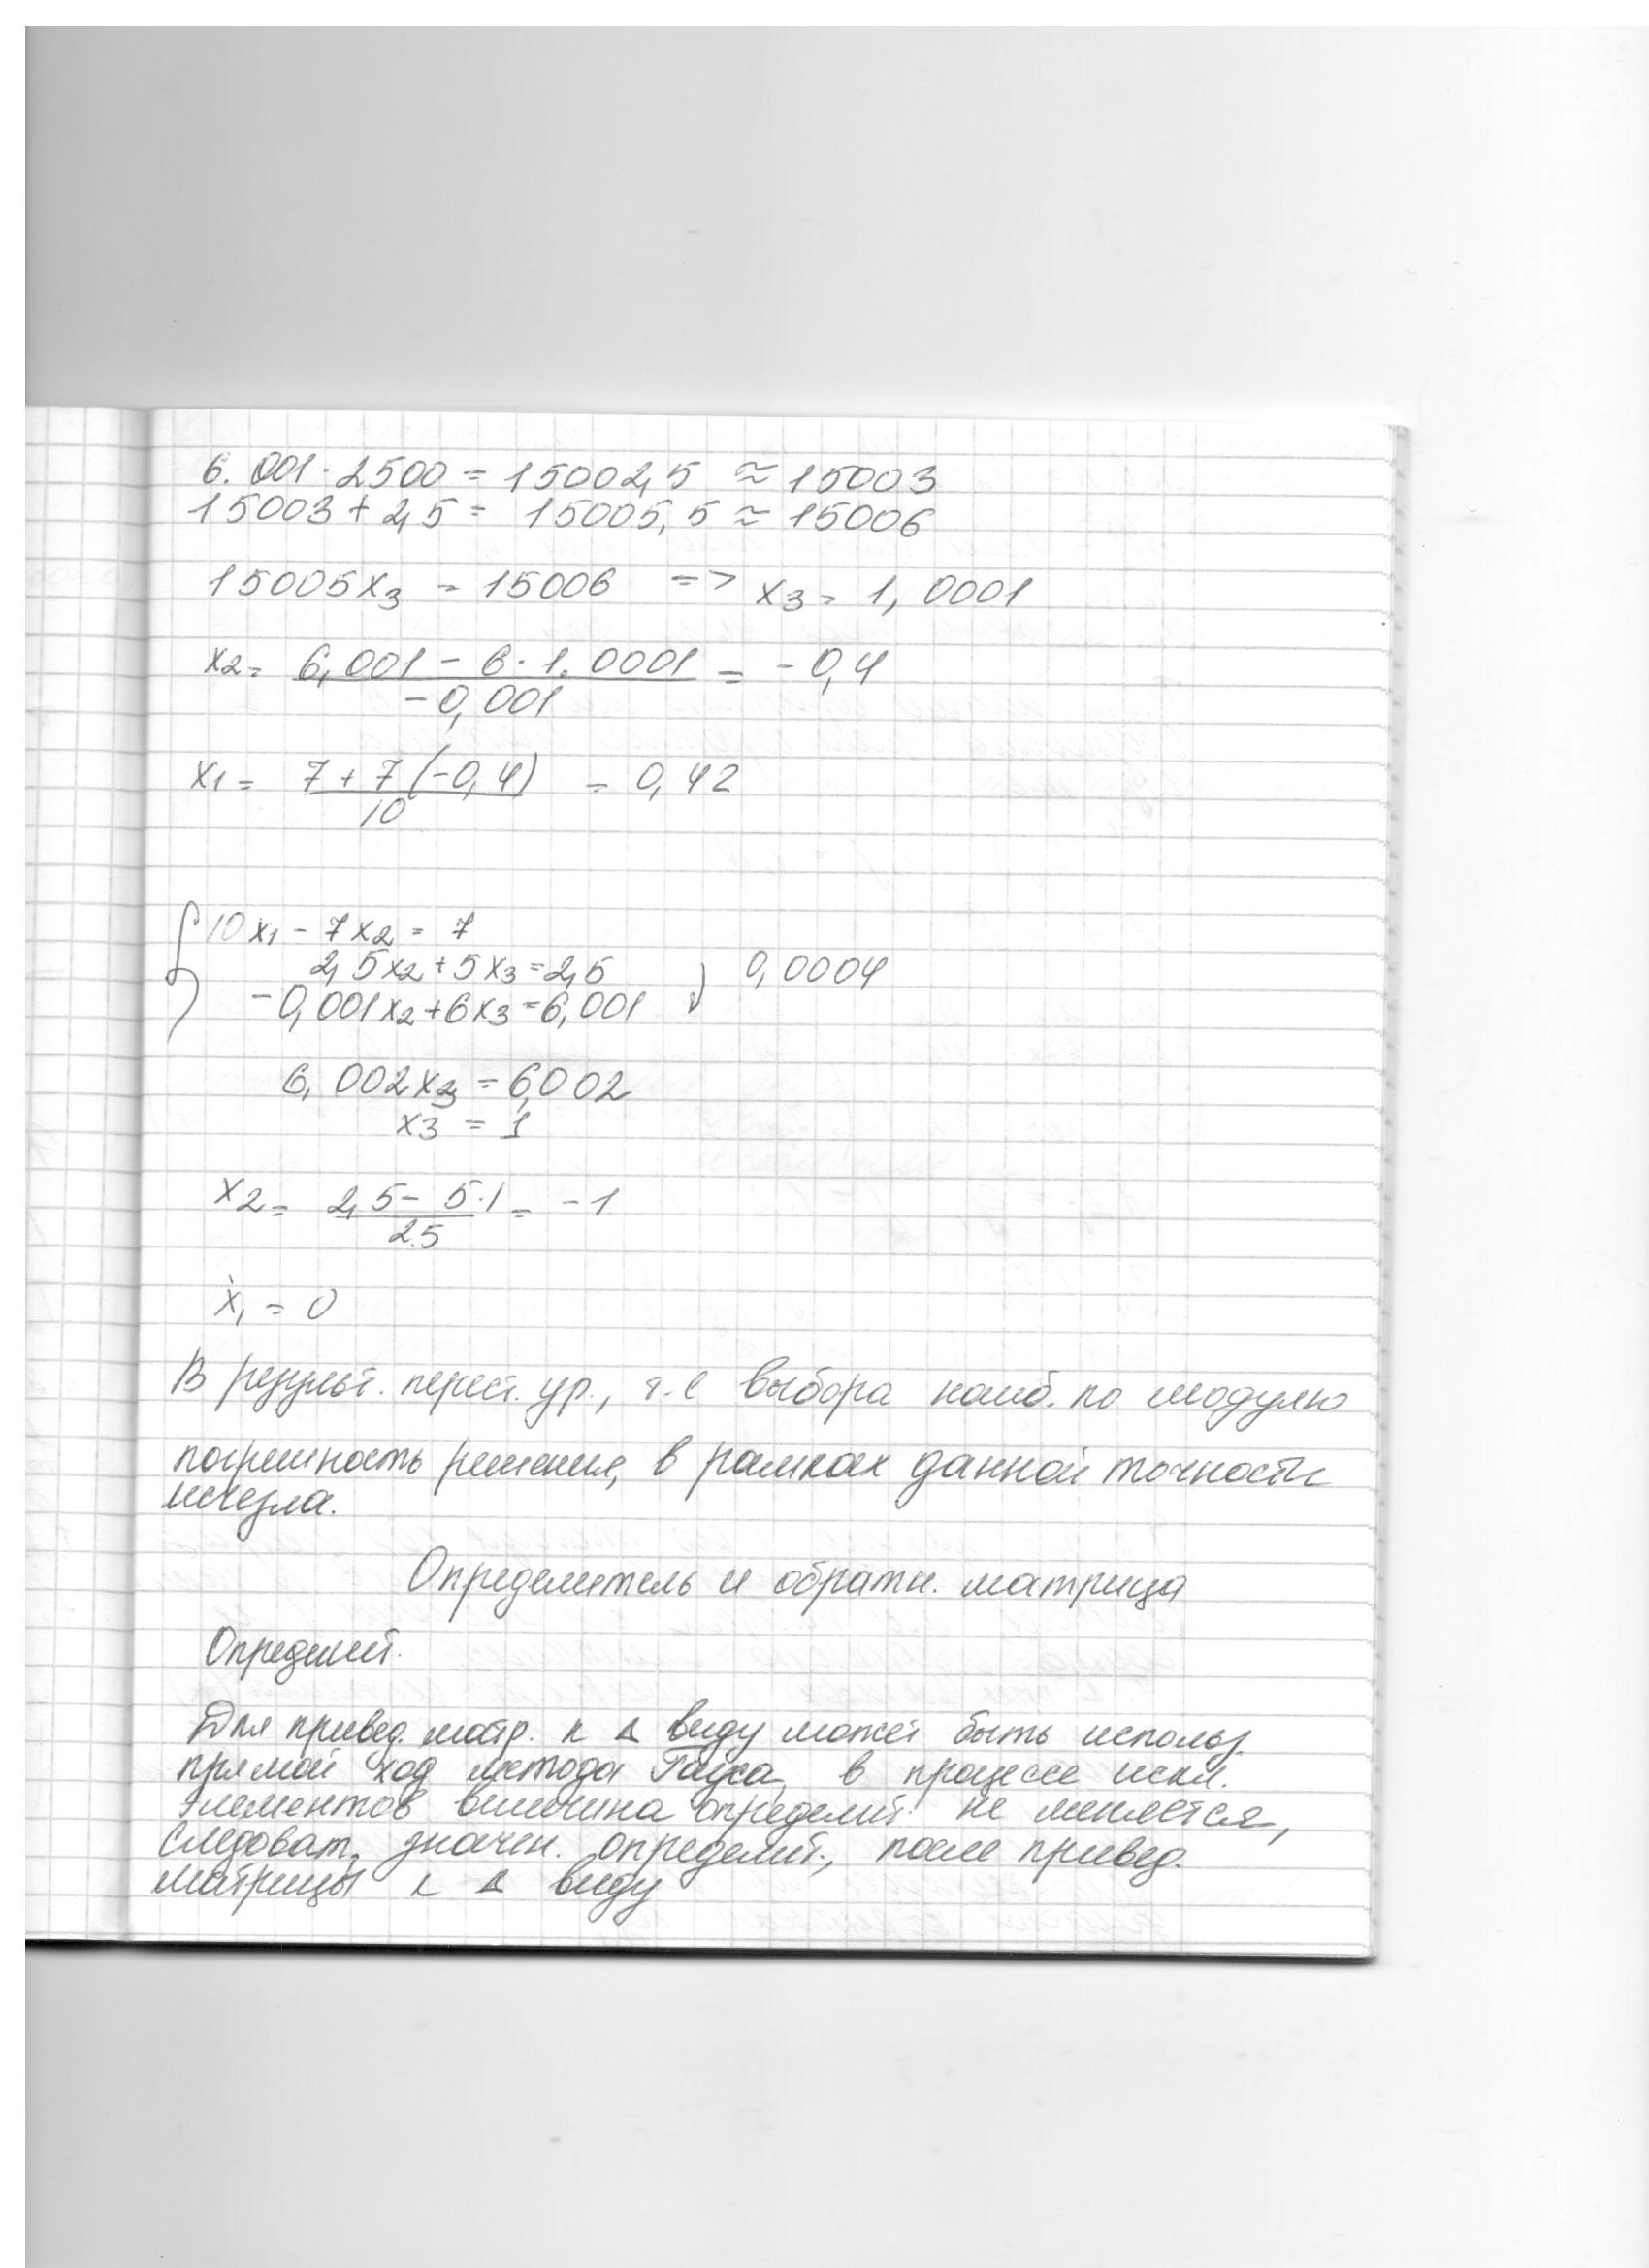 6.001·2500 = 15002,5 ≈ 15003
15003 + 2,5 = 15005,5 ≈ 15006
15005x3 = 15006 => x3 = 1,0001
x2 = (6,001 - 6·1.0001) / (-0,001) = -0,4
x1 = (7 + 7(-0,4)) / 10 = 0,42
10x1 - 7x2 = 7
2,5x2 + 5x3 = 2,5
-0,001x2 + 6x3 = 6,001
0,0004
6,002x3 = 6,002
x3 = 1
x2 = (2,5 - 5·1) / 2.5 = -1
x1 = 0
В результ. перест. ур., т.е выбора наиб. по модулю
погрешность решения, в рамках данной точности
исчезла.
Определитель и обратн. матрица
Определит.
Для привед. матр. к Δ виду может быть использ.
прямой ход метода Гауса, в процессе искл.
элементов величина определит. не меняется,
следоват, значен. определит., после привед.
матрицы к Δ виду